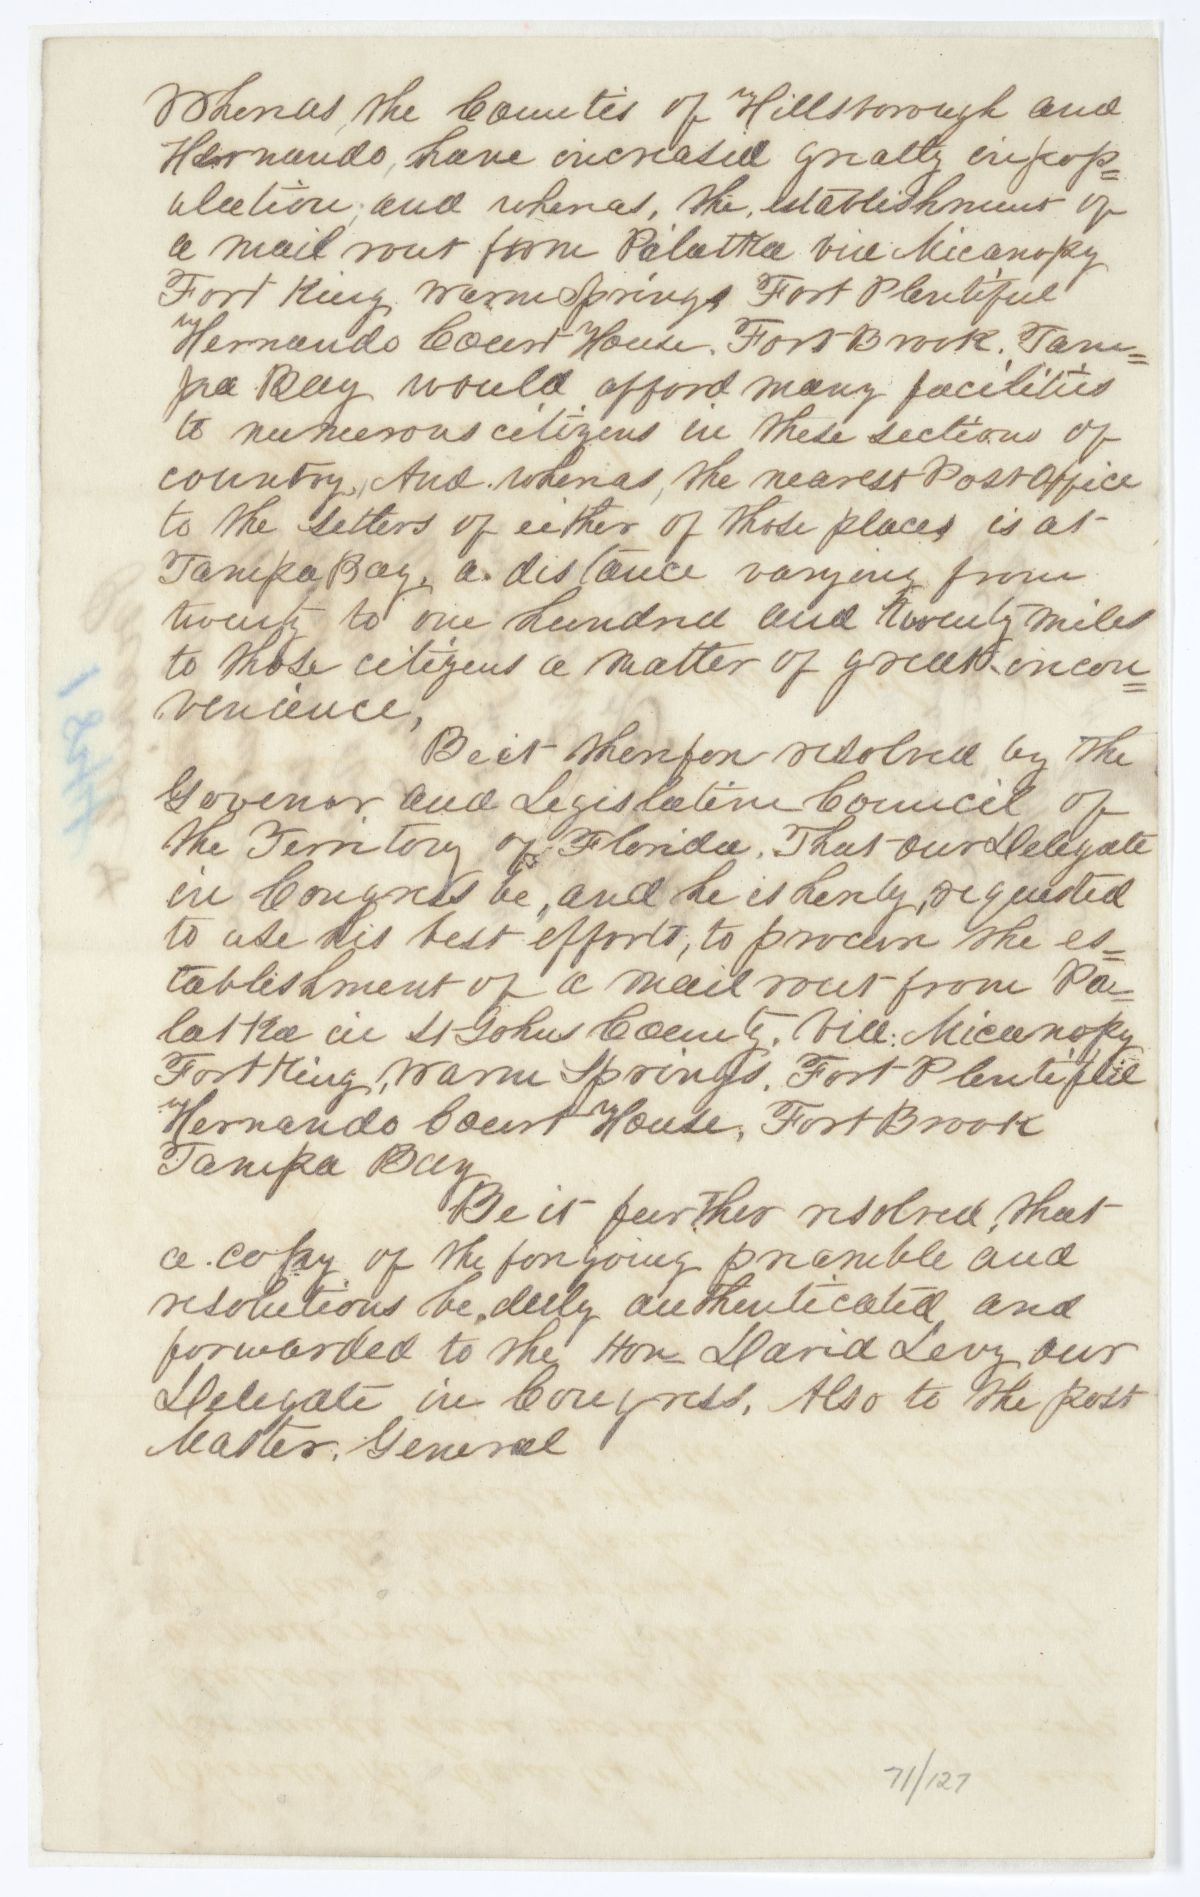 Whereas, the Counties of Hillsborough and
Hernando, have increased greatly in pop=
ulation, and whereas, the establishment of
a mail rout from Palatka via Micanopy
Fort King, Warm Springs, Fort Plentiful
Hernando Court House. Fort Brook. Tam=
pa Bay would afford many facilities
to numerous citizens in these sections of
country, And whereas, the nearest Post Office
to the setlers of either of those places is at
Tampa Bay, a distance varying from
twenty to one hundred and twenty miles
to those citizens a matter of great incon=
venience,
Be it therefore resolved by the
Govenor and Legislative Council of
the Territory of Florida. That our Delegate
in Congress be, and he is hereby, requested
to use his best efforts, to procure the es=
tablishment of a mail rout from Pa=
latka in St Johns County, via: Micanopy
Fort King, Warm Springs, Fort Plentiful
Hernando Court House, Fort Brook
Tampa Bay
Be it further resolved, that
a copy of the foregoing preamble and
resolutions be, duly authenticated and
forwarded to the Hon David Levy our
Delegate in Congress, Also to the Post
Master, General
1844
71/127